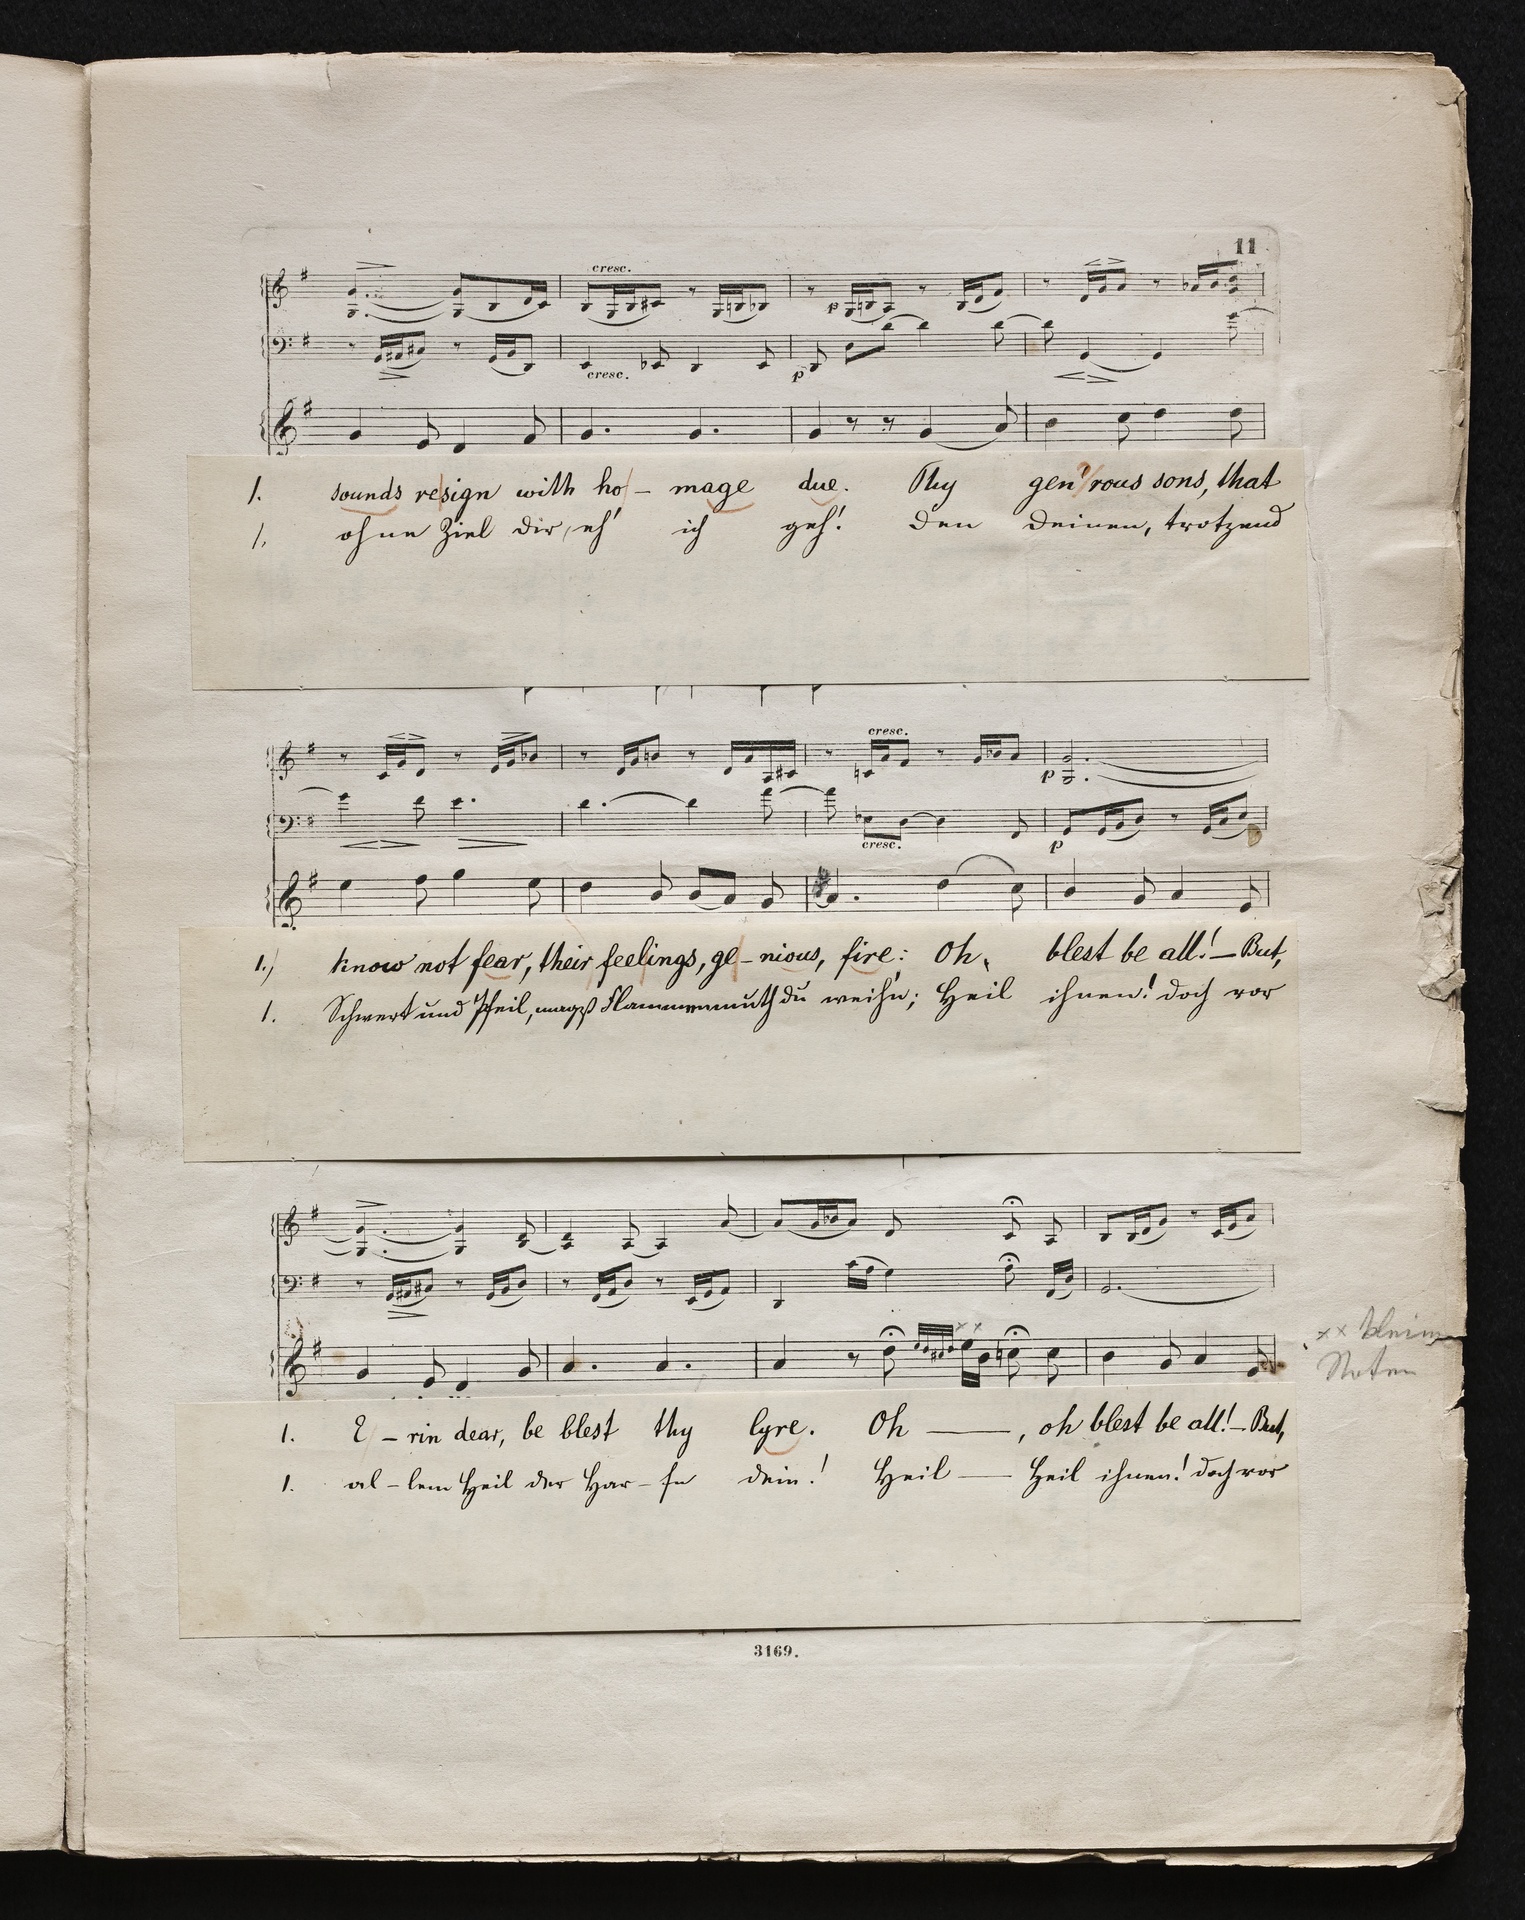 11
cresc.
p
cresc.
p
1. sounds resign with ho - mage due. Thy gen'rous sons, that
1. ohne Ziel dir, eh' ich geh'! den deinen, trotzend
cresc.
p
cresc.
p
1. know not fear, their feelings, ge - nious, fire: Oh, blest be all! — But,
1. Schwert und Pfeil, magst Flammenmuth du weih'n; Heil ihnen! doch vor
x x
x x kleine
Noten
1. E - rin dear, be blest thy lyre. Oh ——, oh blest be all! — But,
1. al - lem Heil der Har - fe dein! Heil —— Heil ihnen! doch vor
3169.